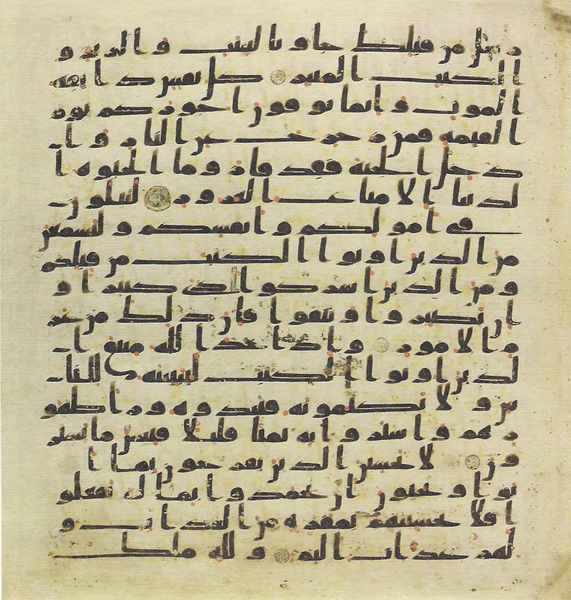 رسل من قبلك جاو بالبينت والزبر و
الكتب المنير كل نفس ذايقه
الموت وانما توفون اجوركم يوم
القيمه فمن زحزح عن النار وا
دخل الجنه فقد فاز وما الحيوه ا
لدنيا الا متاع الغرور لتبلون
في امولكم وانفسكم ولتسمعن
من الذين اوتوا الكتب من قبلكم
ومن الذين اشركوا اذى كثيرا و
ان تصبروا وتتقوا فان ذلك من عز
م الامور واذ اخذ الله ميثق ا
لذين اوتوا الكتب لتبيننه للنا
س ولا تكتمونه فنبذوه ورا ظهور
هم واشتروا به ثمنا قليلا فبيس ما يشتر
ون لا تحسبن الذين يفرحون بما ا
توا ويحبون ان يحمدوا بما لم يفعلو
ا فلا تحسبنهم بمفازه من العذاب و
لهم عذاب اليم ولله ملك